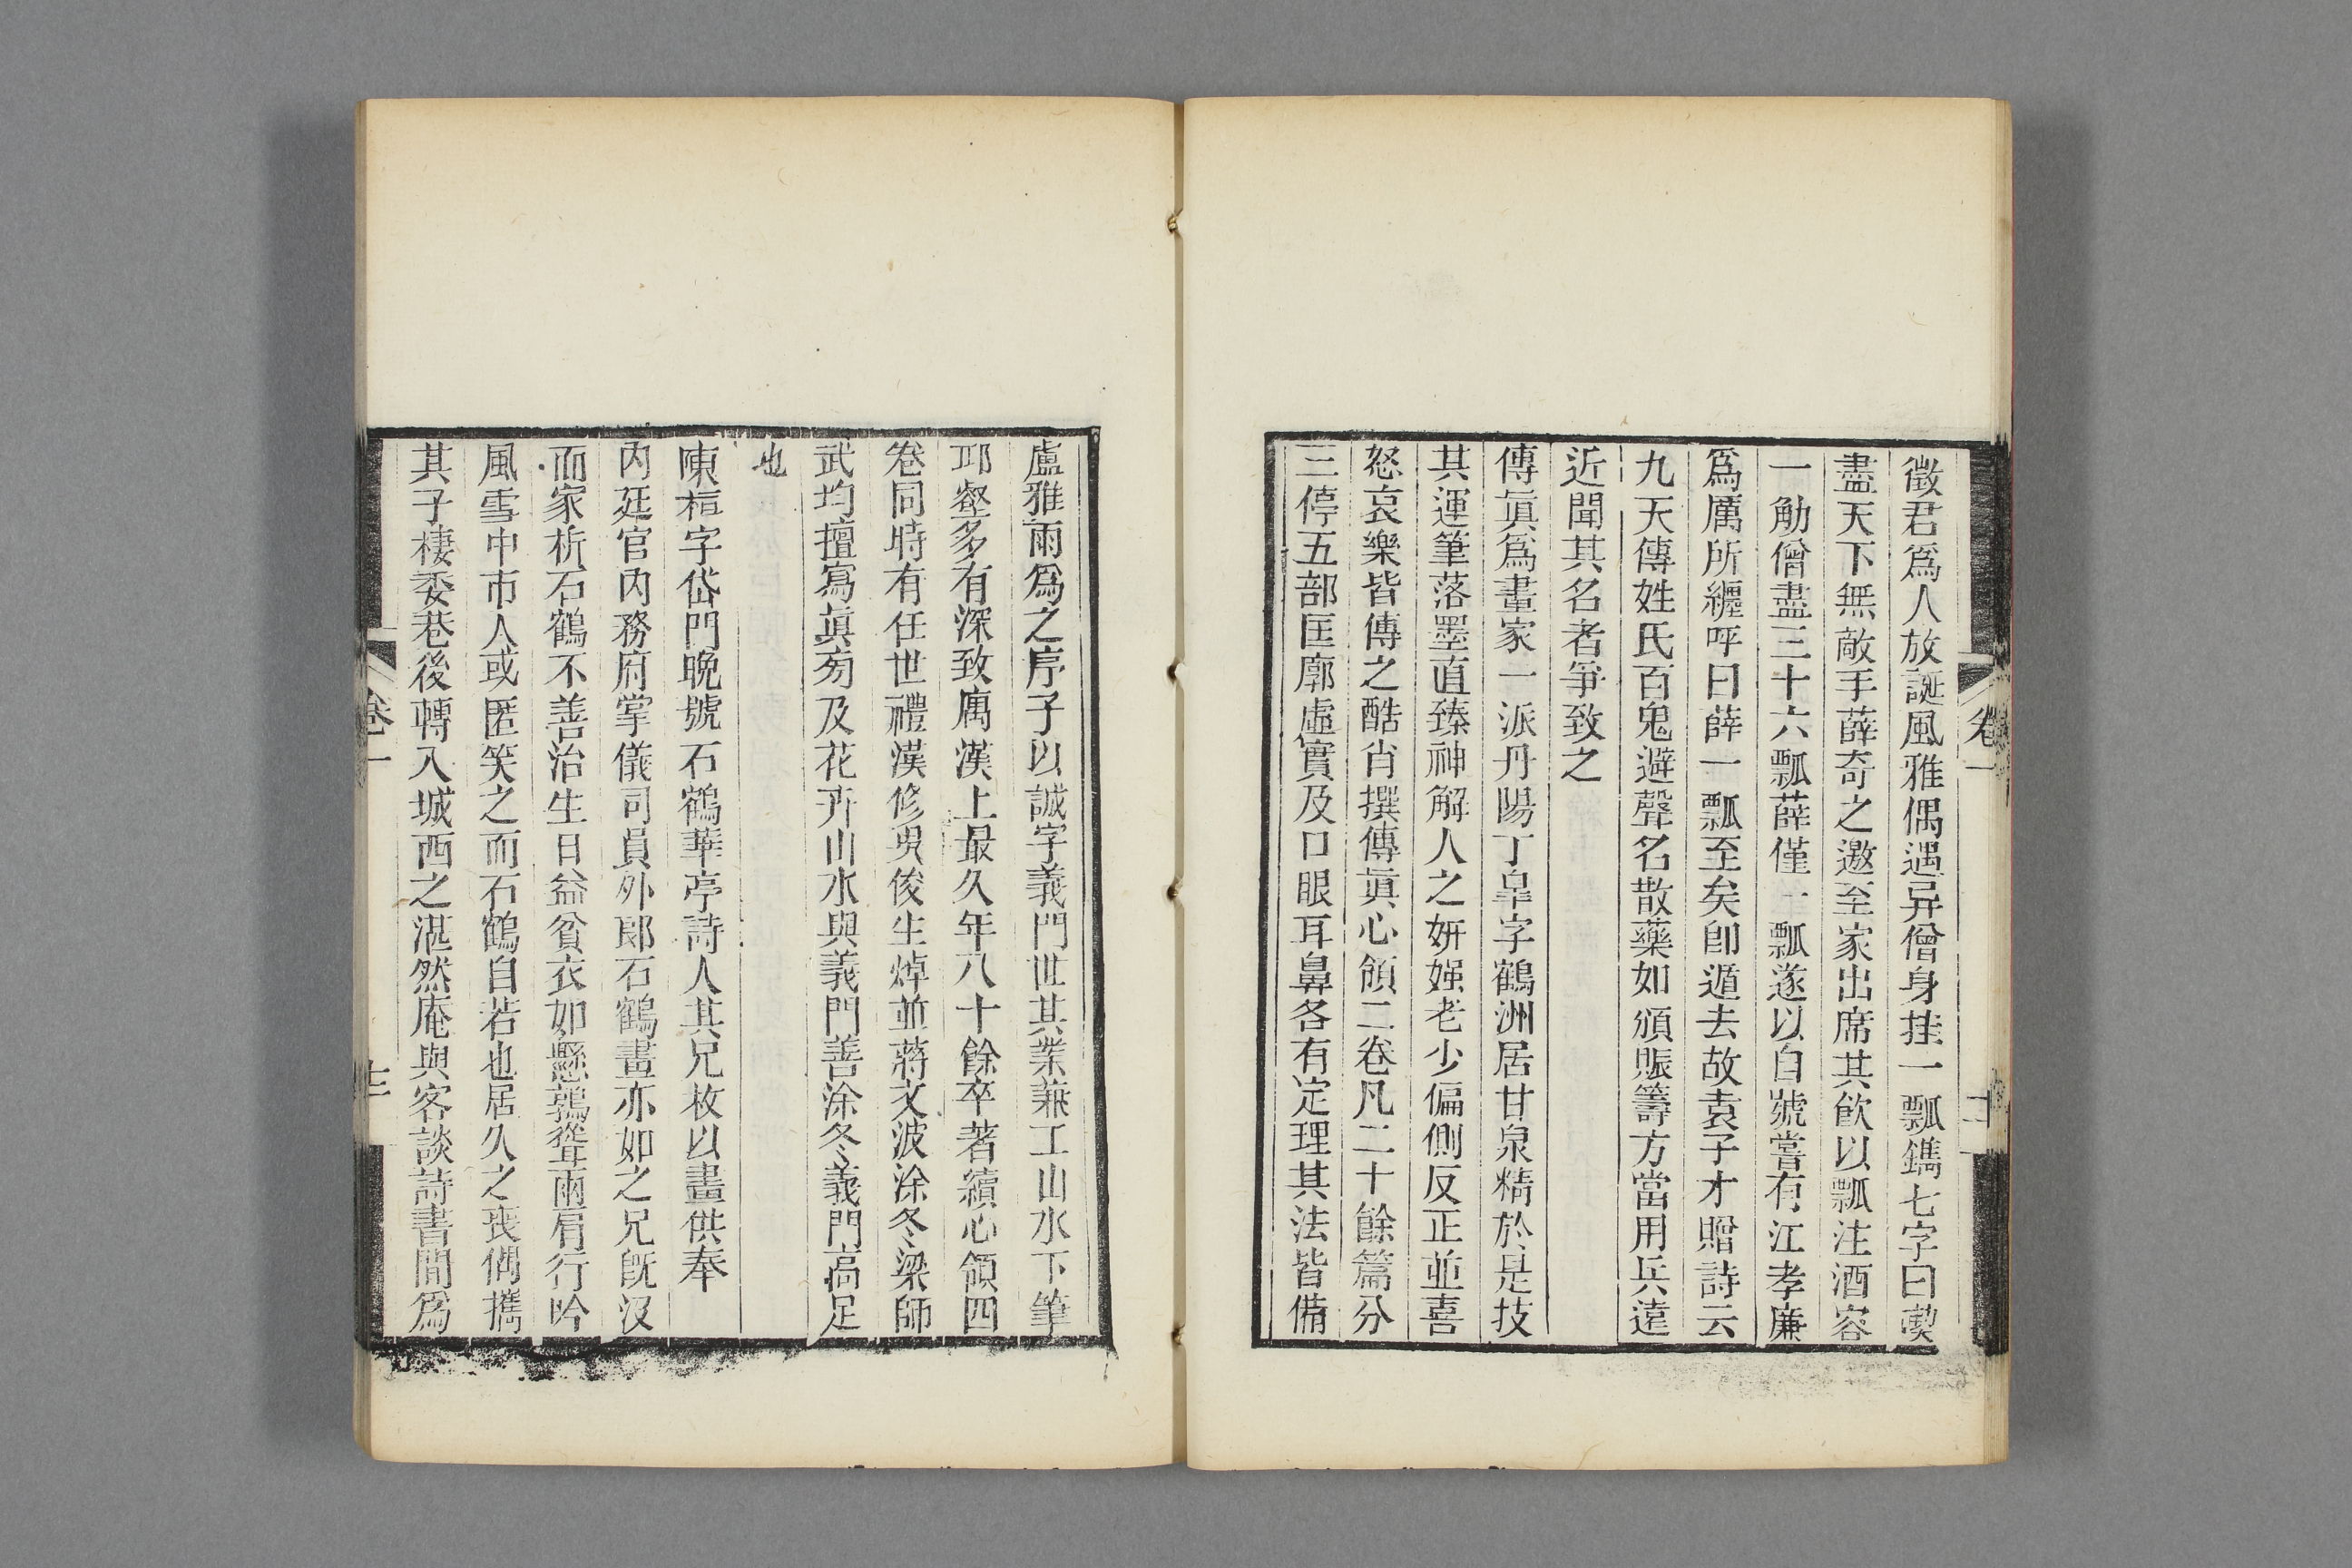 徵君爲人放誕風雅偶遇异僧身挂一瓢鐫七字曰喫
盡天下無敵手薛奇之邀至家出席其飮以瓢注酒容
一觔僧盡三十六瓢薛僅一瓢遂以自號嘗有江孝廉
爲厲所纏呼曰薛一瓢至矣卽遁去故袁子才贈詩云
九天傳姓氏百鬼避聲名散藥如頒賑籌方當用兵遠
近聞其名者爭致之
傳眞爲畫家一派丹陽丁皐字鶴洲居甘泉精於是技
其運筆落墨直臻神解人之妍媸老少偏側反正並喜
怒哀樂皆傳之酷肖撰傳眞心領二卷凡二十餘篇分
三停五部匡廓虛實及口眼耳鼻各有定理其法皆備
盧雅雨爲之序子以誠字義門世其業兼工山水下筆
邱壑多有深致寓漢上最久年八十餘卒著續心領四
卷同時有任世禮漢修吳俊生焯並蔣文波涂冬梁師
武均擅寫眞旁及花卉山水與義門善涂冬義門高足
也
陳桓字岱門晚號石鶴華亭詩人其兄枚以畫供奉
內廷官內務府掌儀司員外郎石鶴畫亦如之兄旣沒
而家析石鶴不善治生日益貧衣如懸鶉聳兩肩行吟
風雪中市人或匿笑之而石鶴自若也居久之喪偶攜
其子棲委巷後轉入城西之湛然庵與客談詩書間爲
卷一
卷一